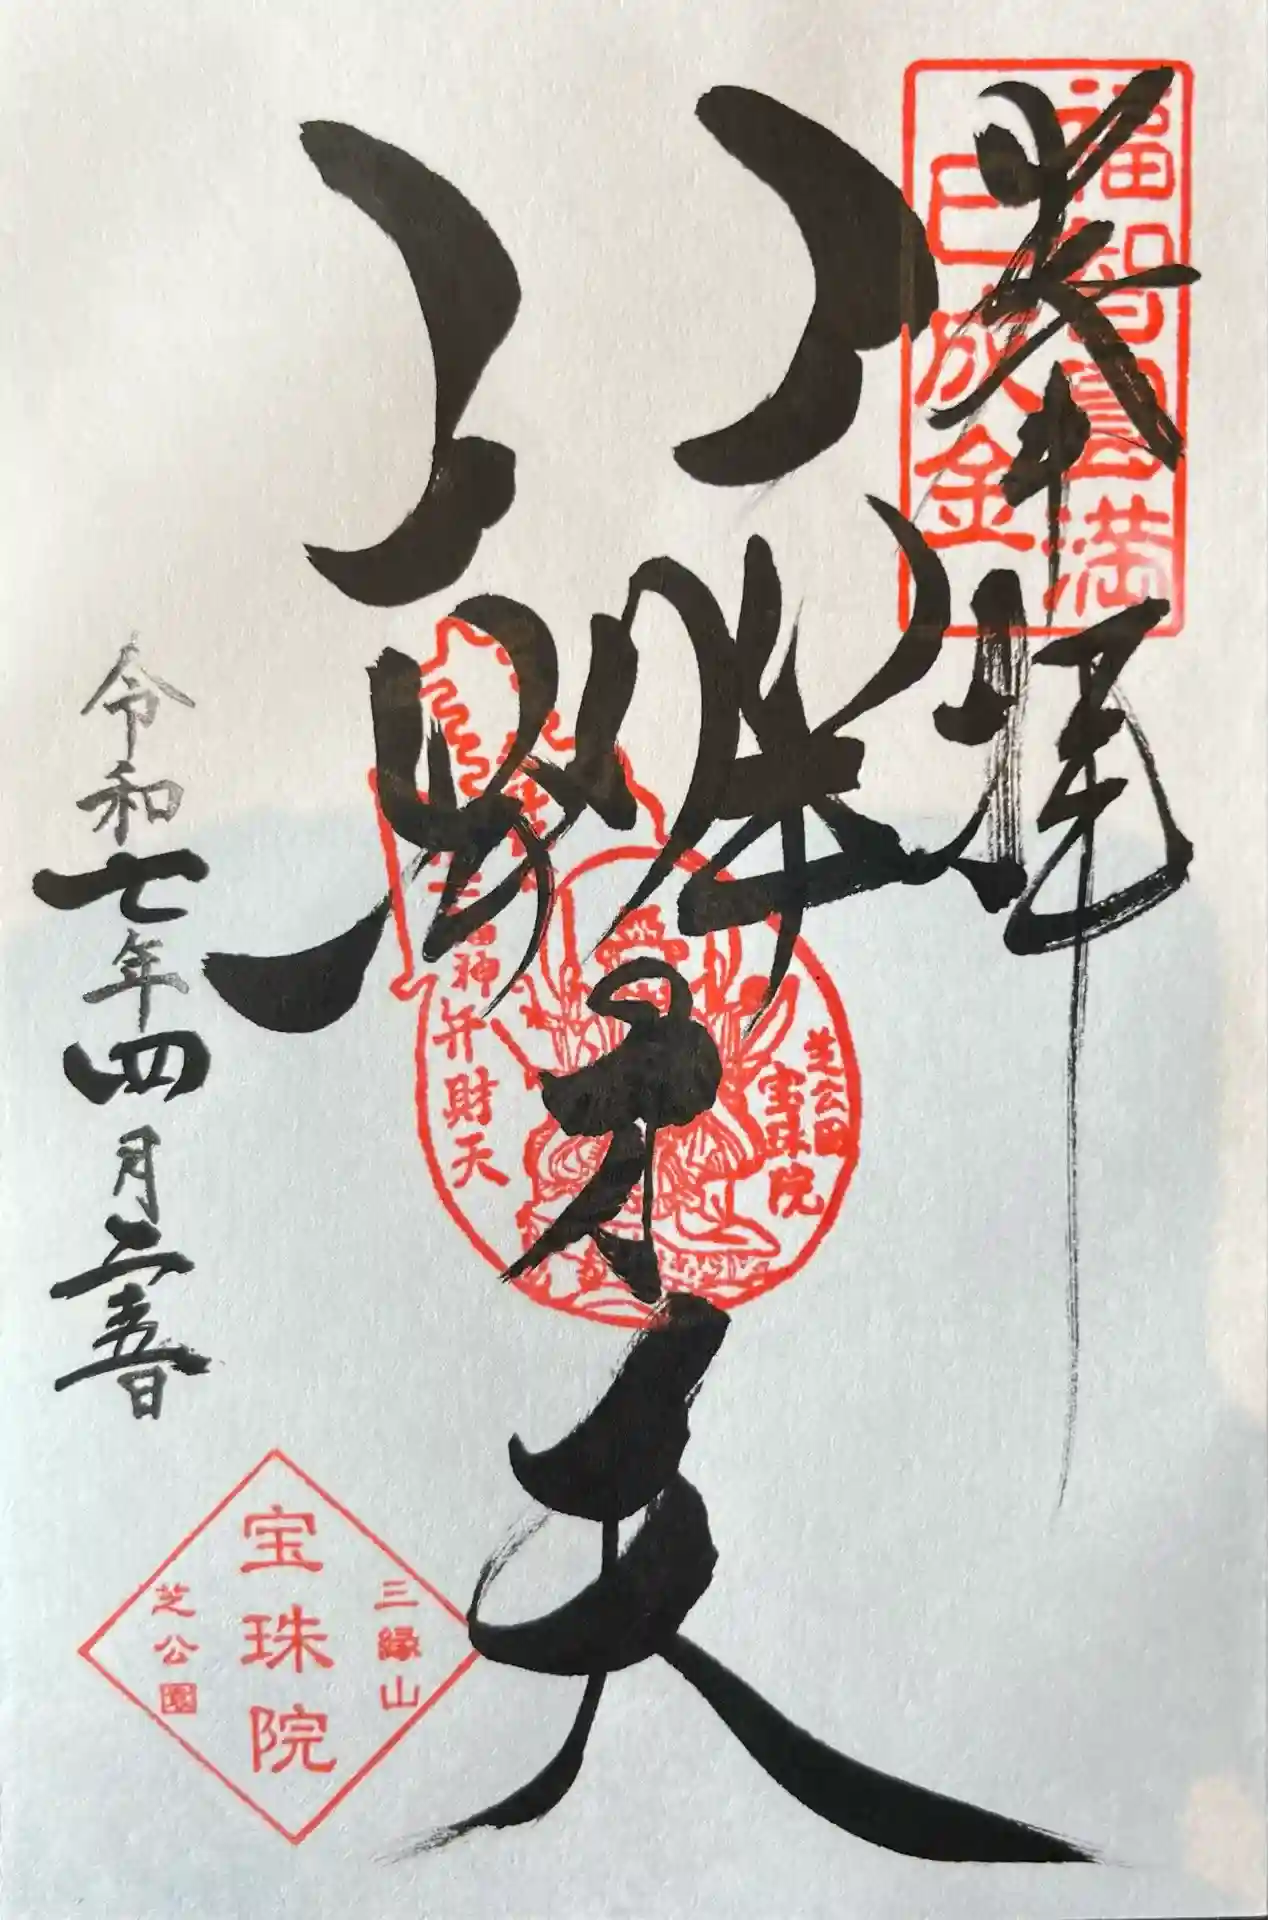 奉拝
福智円満
巳成金
辨才天
弁財天
芝公園
宝珠院
令和七年四月二十五日
三縁山
宝珠院
芝公園